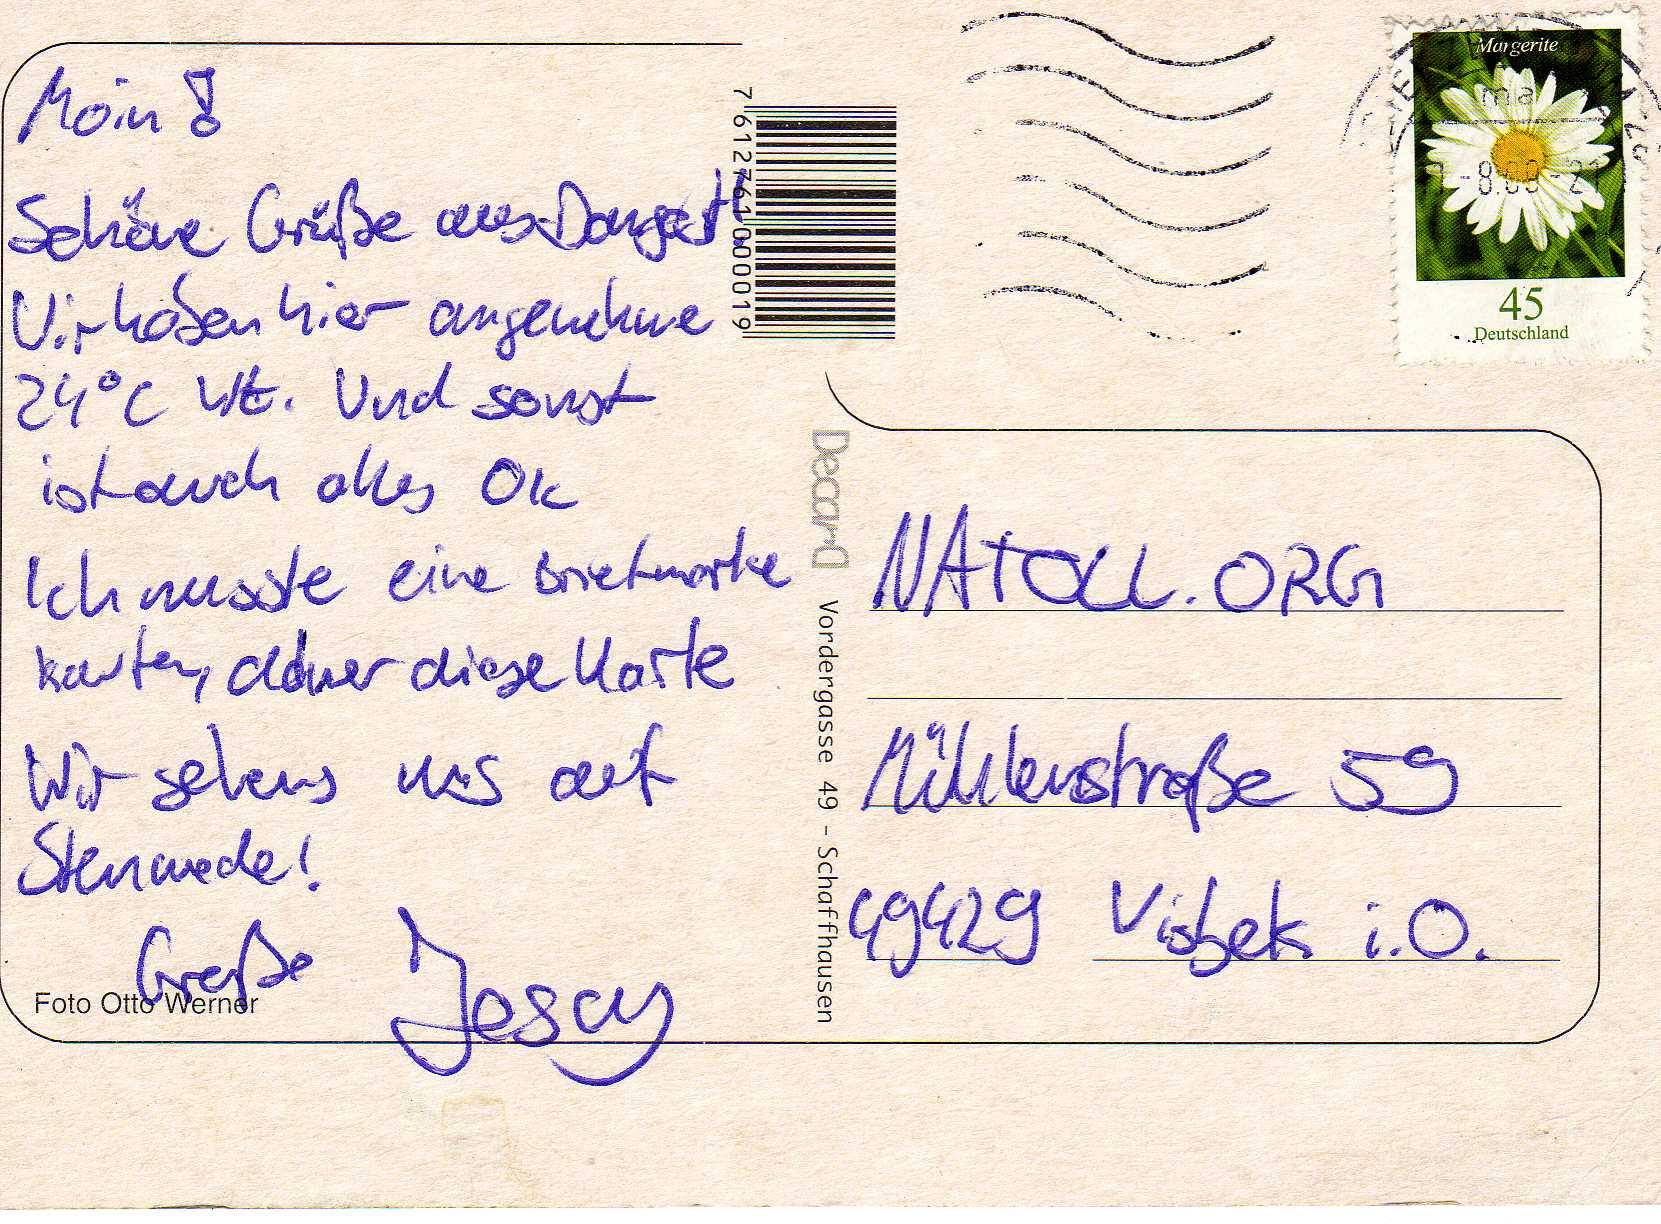 Moin!
Schöne Grüße aus Dangast!
Wir haben hier angenehme
24°C
Und sonst
ist auch alles Ok
Ich musste eine Briefmarke
kaufen, daher diese Karte
Wir sehens uns auf
Stemwede!
Grüße
Jescy
Foto Otto Werner
7 612761 000019
Decard
Vordergasse 49 - Schaffhausen
Margerite
45
Deutschland
NATOLL.ORG
Mühlenstraße 59
49429 Visbek i.O.